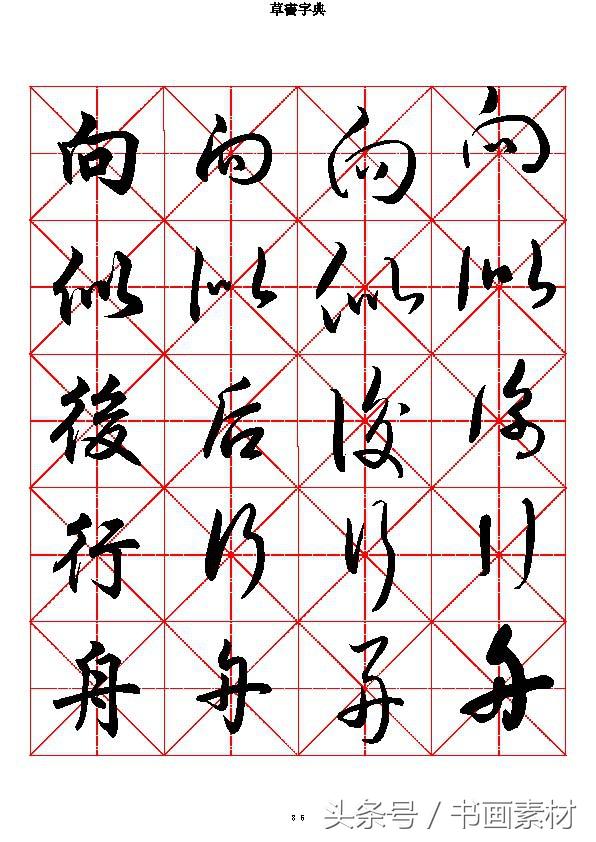 草書字典
向 向 向 向
似 似 似 似
後 后 後 後
行 行 行 行
舟 舟 舟 舟
36
头条号 / 书画素材